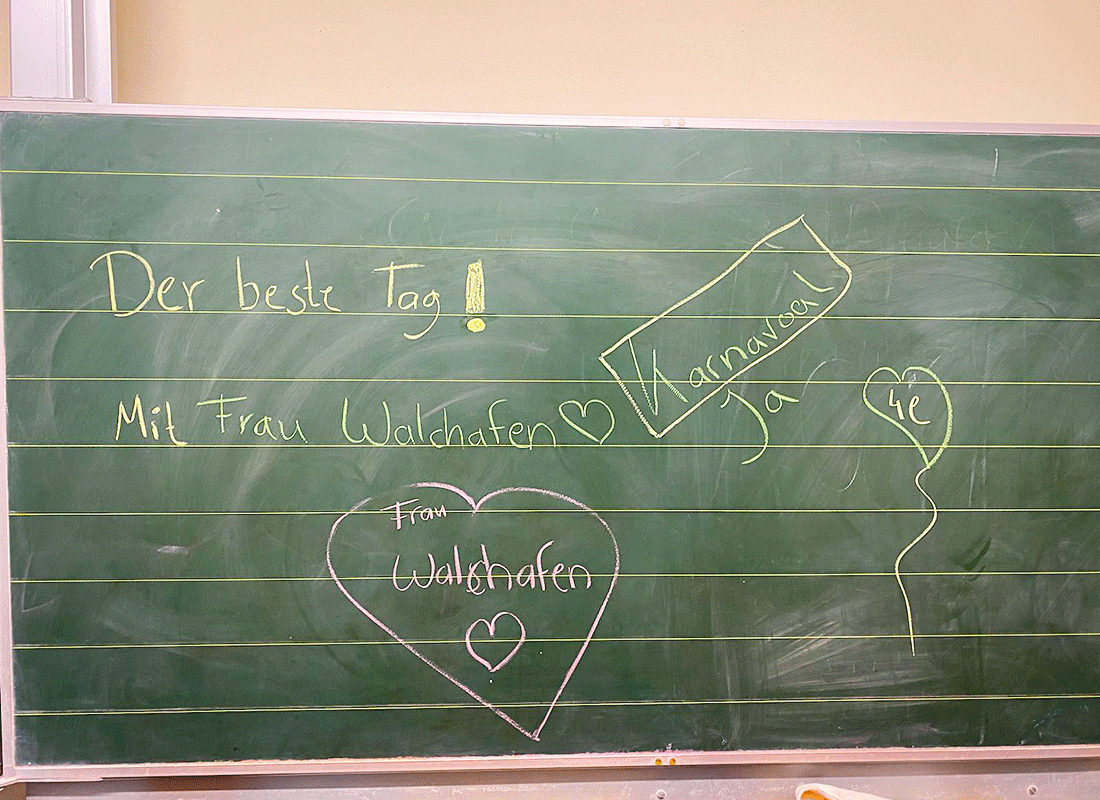 Der beste Tag!
Mit Frau Walchafen ♡
Karnavoal
Ja
4e
Frau
Walchafen
♡